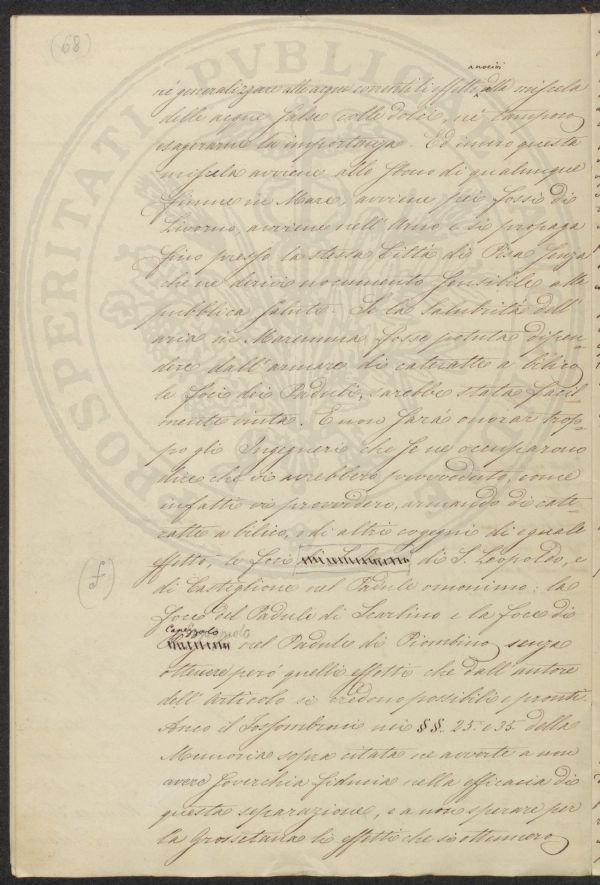 (68)
a nocivi
né generalizzare alle acque correnti li effetti alla miscela
delle acque salse colle dolci, né tampoco
esagerarne la importanza. Ed invero questa
miscela avviene allo sbocco di qualunque
fiume in Mare, avviene pei fossi di
Livorno, avviene nell'Arno e si propaga
fino presso la stessa Città di Pisa senza
che ne derivi nocumento sensibile alla
pubblica salute. Se la salubrità dell'
aria in Maremma fosse potuta dipen-
dere dall'armare di cateratte a bilico
le foci dei Paduli, sarebbe stata facil-
mente vinta. E non sarà onorar trop-
po gli Ingegneri che se ne occuparono
dire che vi avrebbero provveduto, come
infatti vi provvidero, armando di cate-
ratte a bilico, o di altri congegni di eguale
effetto, le foci di S. Leopoldo, e
di Castiglione nel Padule omonimo: la
(f)
foce del Padule di Scarlino e la foce di
Capezzolo
nel Padule di Piombino, senza
ottenere però quelli effetti che dall'autore
dell'Articolo si credono possibili e pronti.
Anco il Fossombroni nei §§. 25. e 35. della
Memoria sopra citata ne avverte a non
avere soverchia fiducia nella efficacia di
questa separazione, e a non sperare per
la Grossetana li effetti che si ottennero
PROSPERITATI PUBLICAE